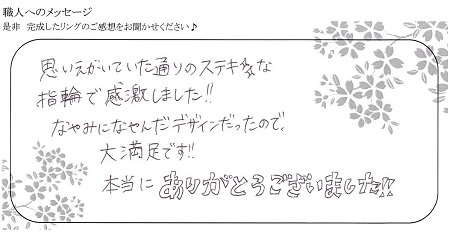 職人へのメッセージ
是非 完成したリングのご感想をお聞かせください♪
思いえがいていた通りのステキな
指輪で感激しました!!
なやみになやんだデザインだったので、
大満足です!!
本当にありがとうございました!!